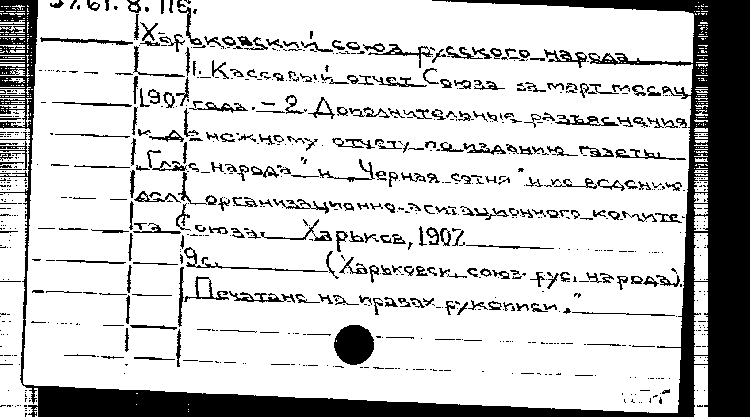 37.61.8.116.
Харьковский союз русского народа.
1. Кассовый отчет Союза за март месяц
1907 года. – 2. Дополнительные разъяснения
к денежному отчету по изданию газеты
„Глас народа" и „Черная сотня" и по ведению
дела организационно-агитационного комите-
та Союза. Харьков, 1907.
9с. (Харьковск. союз рус. народа).
„Печатано на правах рукописи."